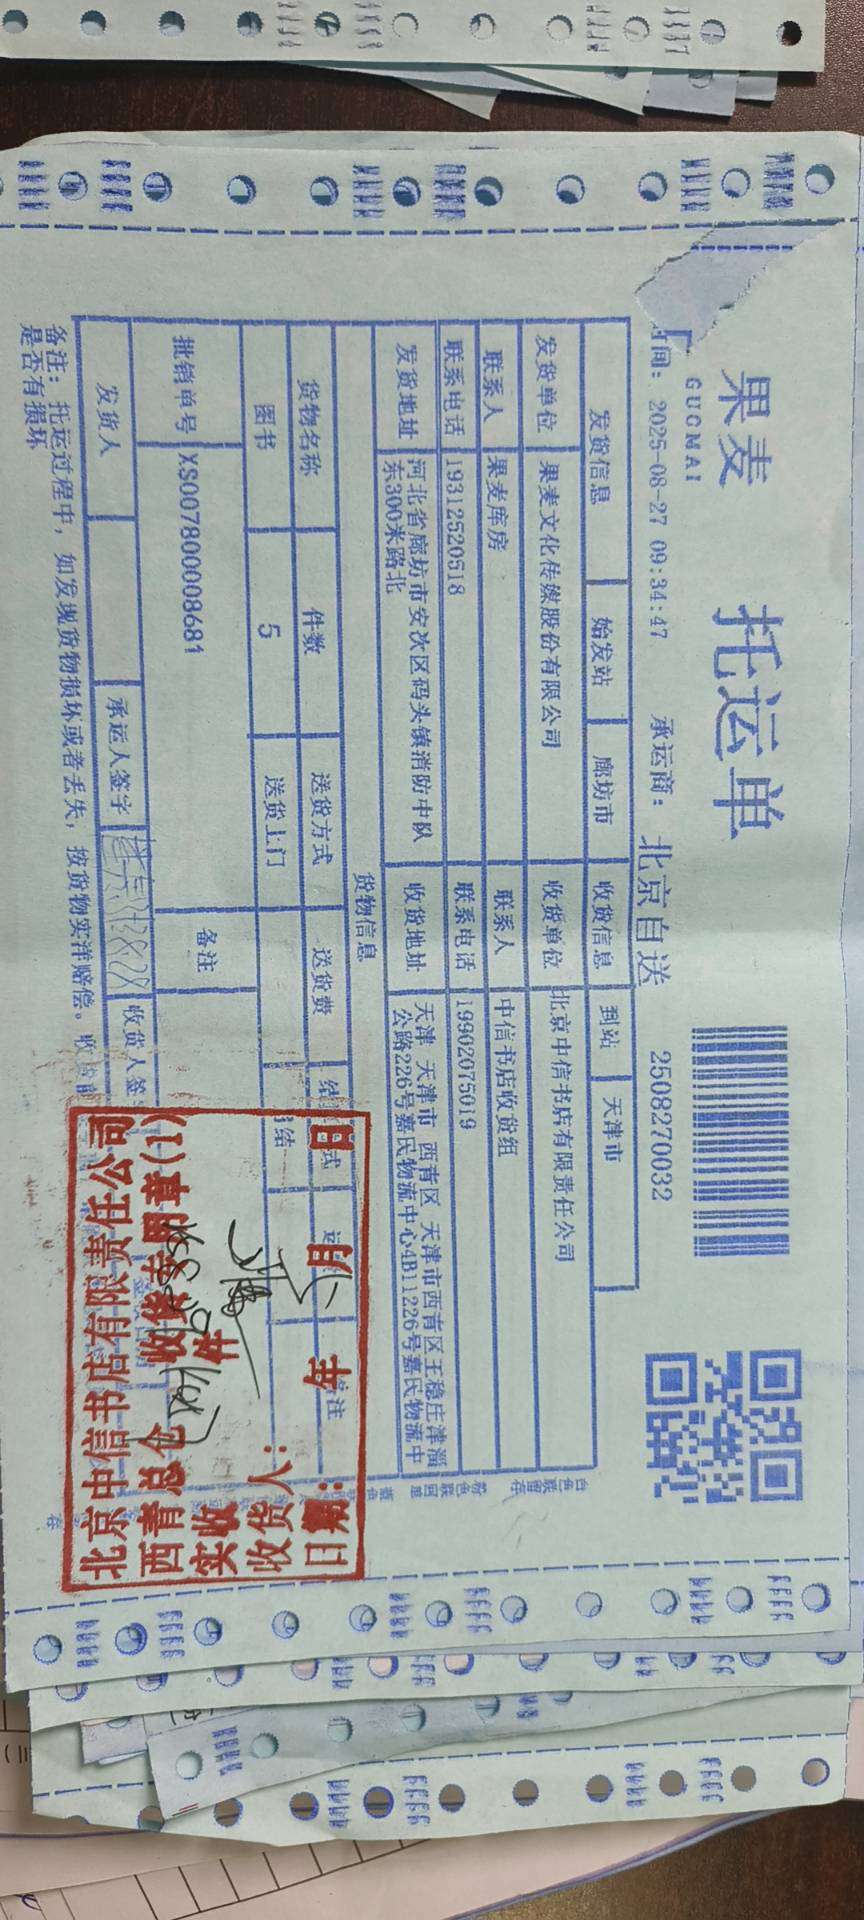 果麦
GUOMAI
托运单
时间: 2025-08-27 09:34:47 承运商: 北京自送 2508270032
发货信息 始发站 廊坊市 收货信息 到站 天津市
发货单位 果麦文化传媒股份有限公司 收货单位 北京中信书店有限责任公司
联系人 果麦库房 联系人 中信书店收货组
联系电话 19312520518 联系电话 19902075019
发货地址 河北省廊坊市安次区码头镇消防中队东300米路北 收货地址 天津 天津市 西青区 天津市西青区王稳庄津淄公路226号嘉民物流中心4B11226号嘉民物流中
货物信息
货物名称 件数 送货方式 送货费
图书 5 送货上门
批销单号 XS007800008681 备注
发货人 承运人签字 收货人签
备注: 托运过程中, 如发现货物损坏或者丢失, 按货物实洋赔偿。收货前
是否有损坏
北京中信书店有限责任公司
西青总仓 收货专用章(1)
实收 件
收货人:
日期: 年 月 日